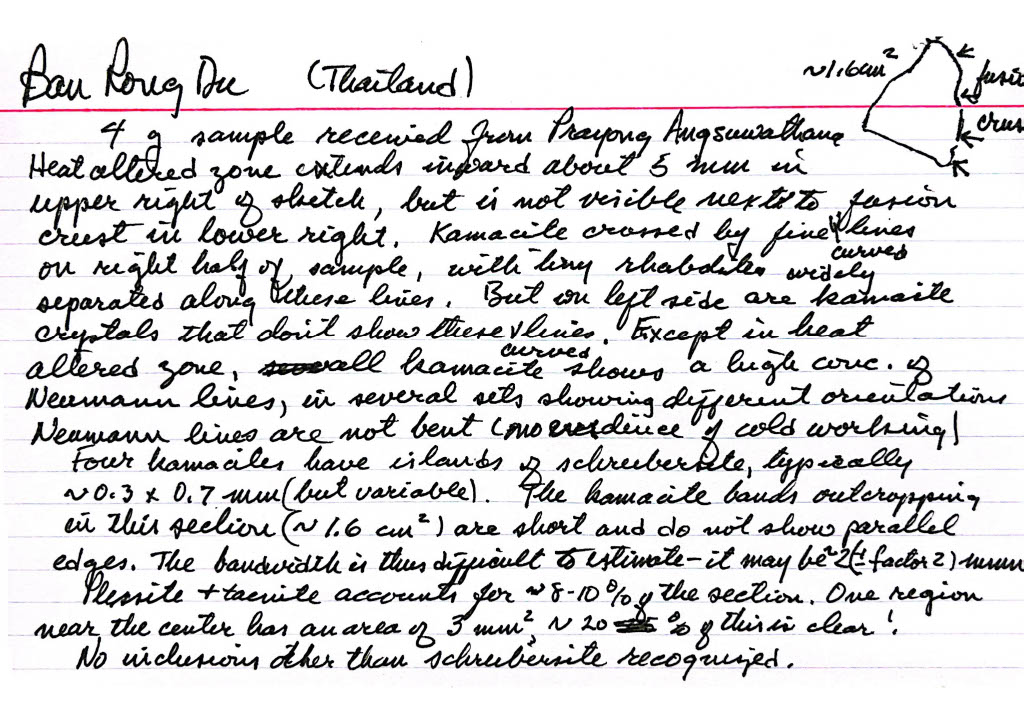 Ban Rong Du (Thailand)
~1.6 cm²
fusio
crus
4 g sample received from Prayong Angsuwathana
Heat altered zone extends inward about 5 mm in
upper right of sketch, but is not visible next to fusion
crust in lower right. Kamacite crossed by fine curved lines
on right half of sample, with tiny rhabdites widely
separated along these lines. But on left side are kamacite
crystals that don't show these curved lines. Except in heat
altered zone, all kamacite shows a high conc. of
Neumann lines, in several sets showing different orientations
Neumann lines are not bent (no evidence of cold working)
Four kamacites have islands of schreibersite, typically
~0.3 x 0.7 mm (but variable). The kamacite bands outcropping
in this section (~1.6 cm²) are short and do not show parallel
edges. The bandwidth is thus difficult to estimate - it may be ~2 (± factor 2) mm
Plessite + taenite accounts for ~8-10% of the section. One region
near the center has an area of 3 mm², ~20 % of this is clear
No inclusions other than schreibersite recognized.